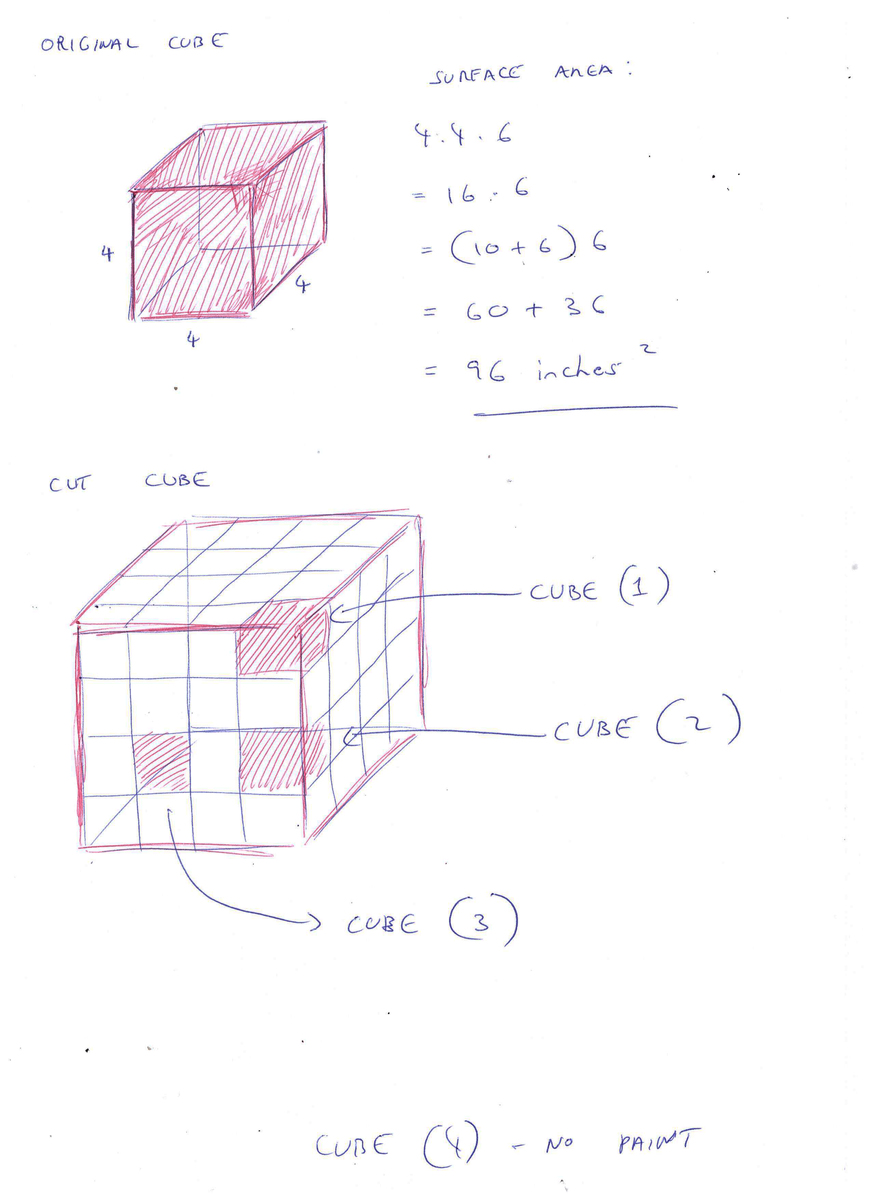 ORIGINAL CUBE
SURFACE AREA:
4.4.6
= 16.6
= (10+6)6
= 60 + 36
= 96 inches²
4
4
4
CUT CUBE
CUBE (1)
CUBE (2)
CUBE (3)
CUBE (4) - NO PAINT